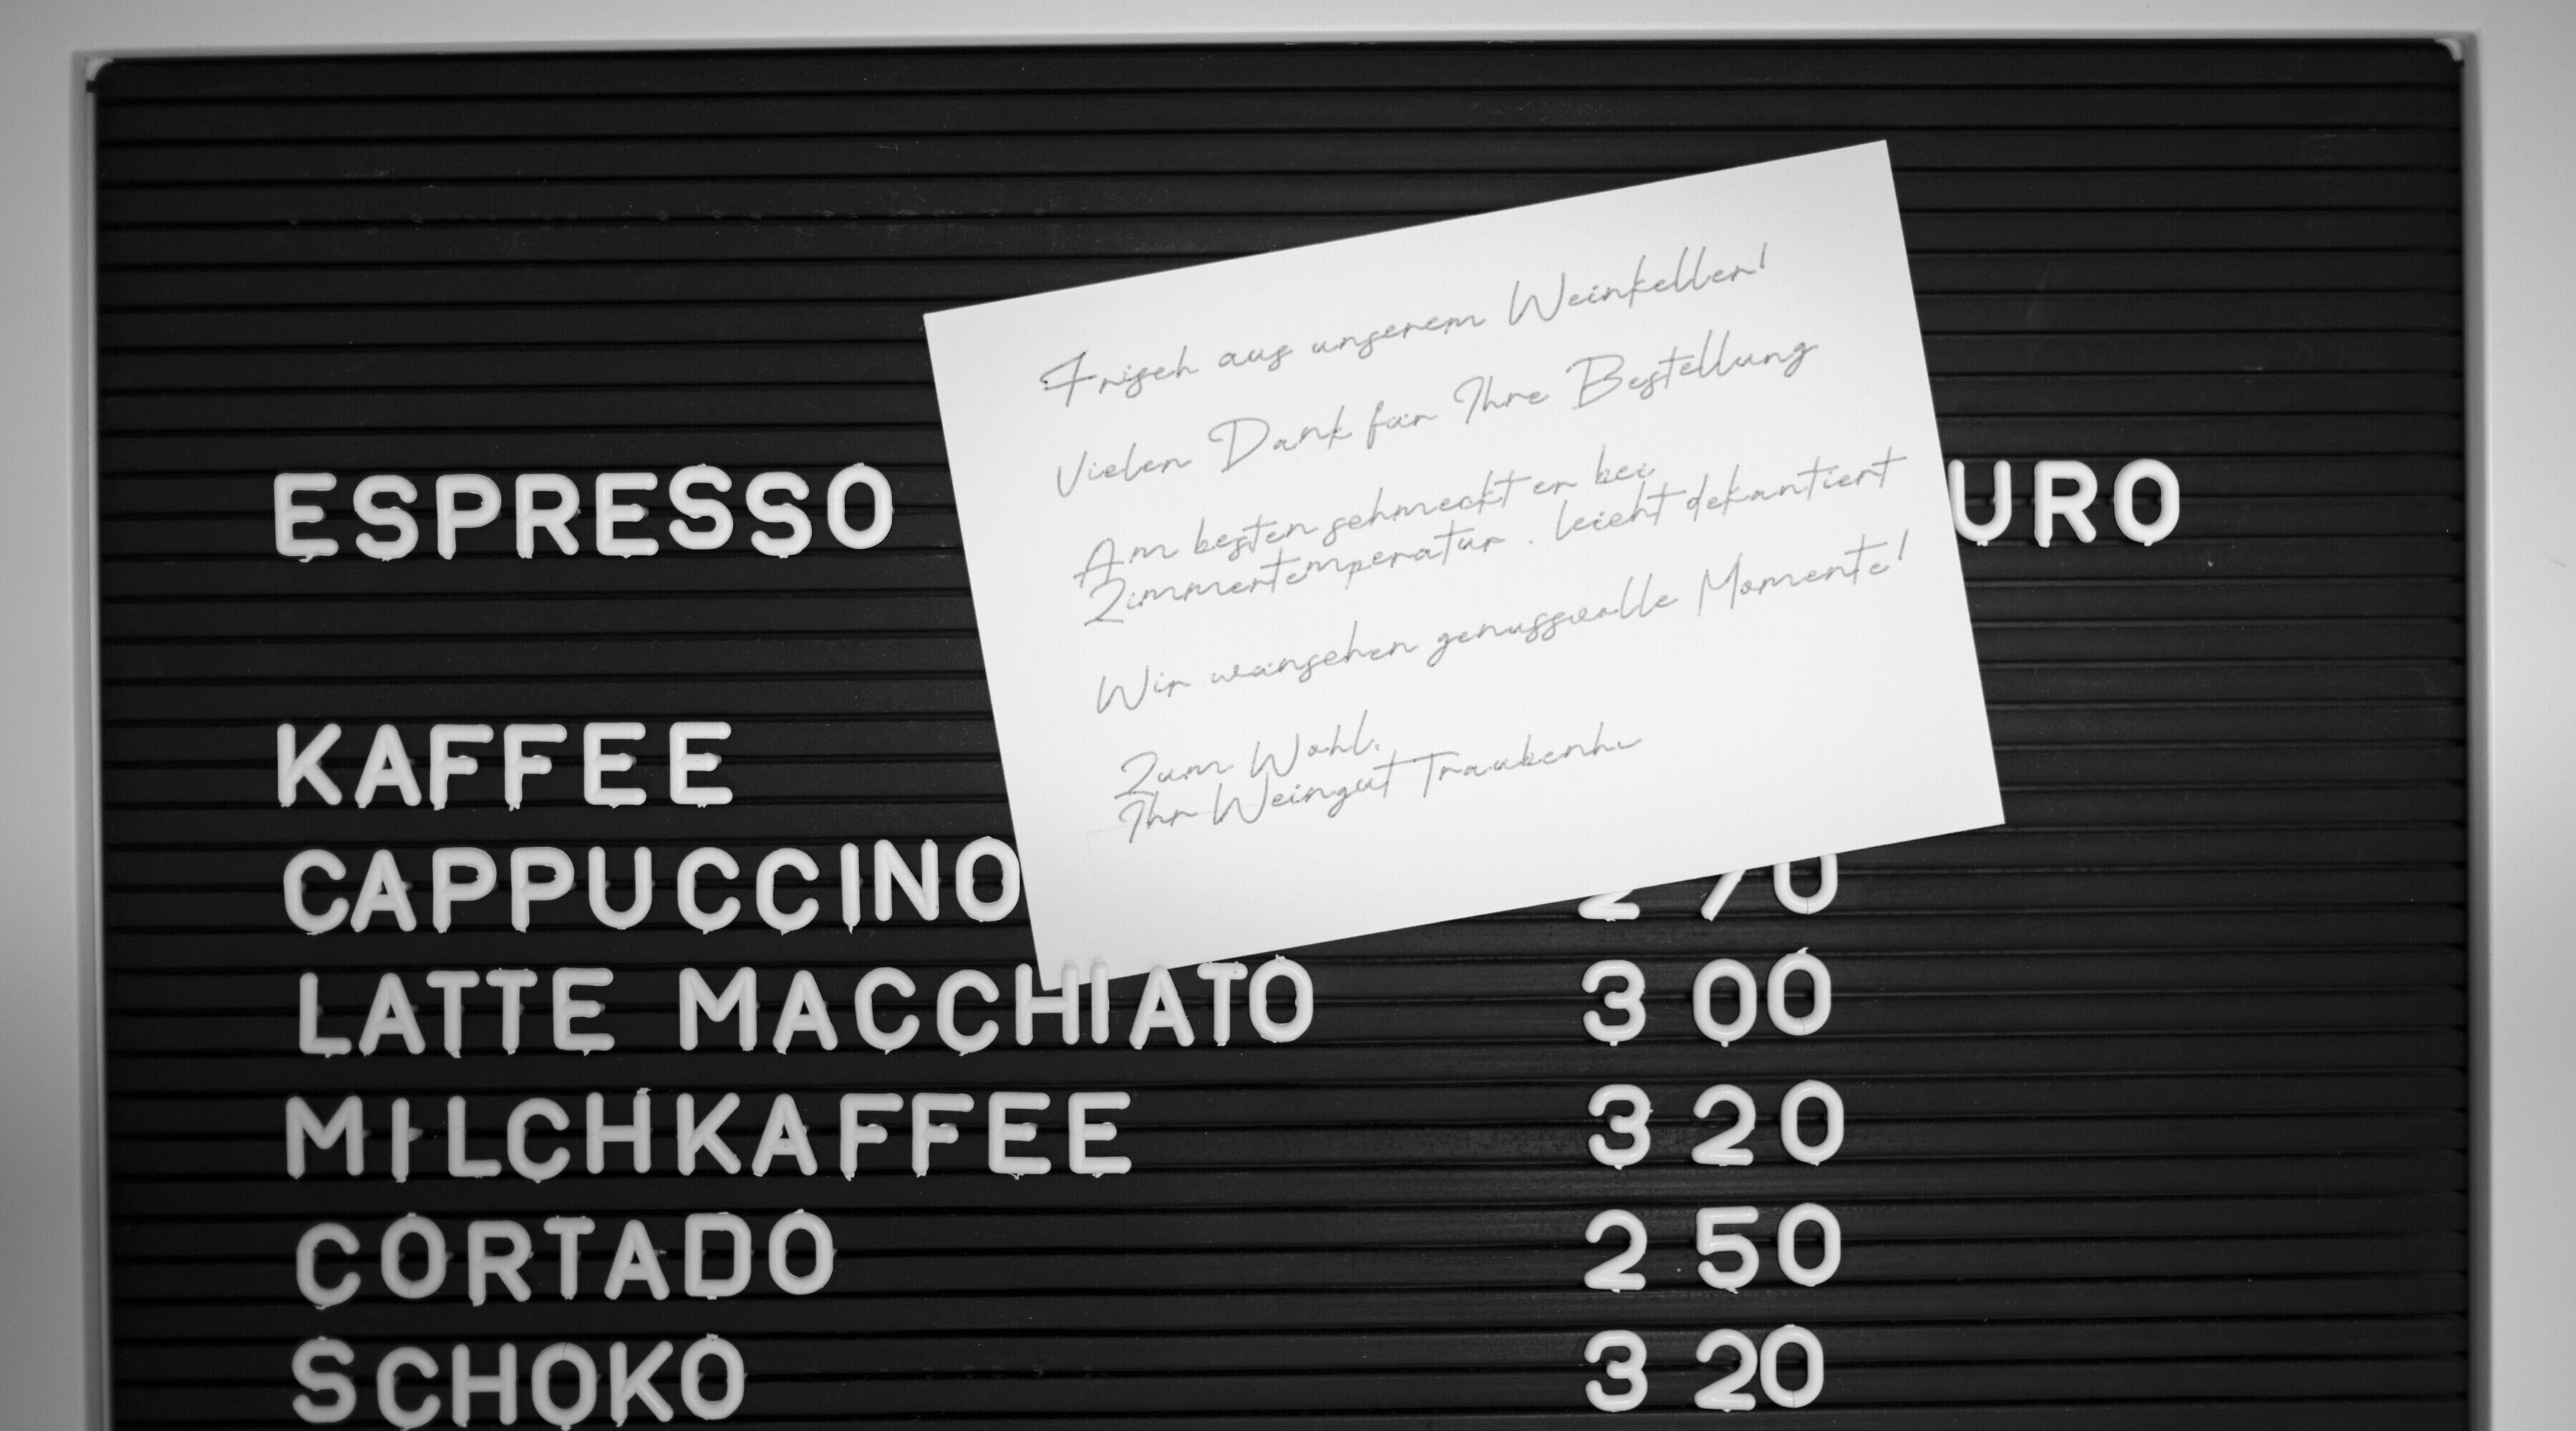 Frisch aus unserem Weinkeller!
Vielen Dank für Ihre Bestellung
Am besten schmeckt er bei
Zimmertemperatur . leicht dekantiert
Wir wünschen genussvolle Momente!
Zum Wohl,
Ihr Weingut
ESPRESSO
KAFFEE
CAPPUCCINO
LATTE MACCHIATO 3 00
MILCHKAFFEE 3 20
CORTADO 2 50
SCHOKO 3 20